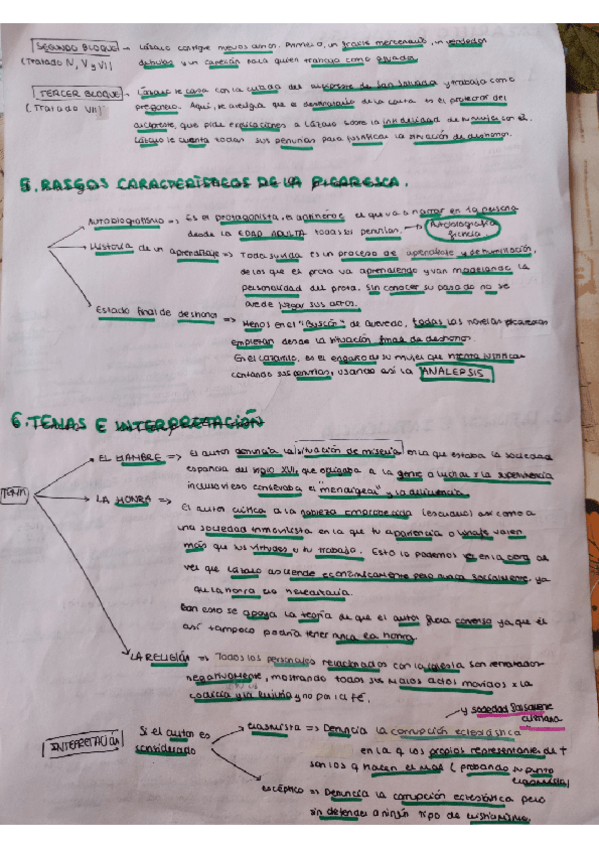 SEGUNDO BLOQUE → Lázaro consigue nuevos amos. Primero, un fraile mercenario, un vendedor
(Tratado IV, V y VI) de bulas y un capellán para quien trabaja como aguador
TERCER BLOQUE → Lázaro se casa con la criada del de San Salvador y trabaja como
(Tratado VII) pregonero. Aquí, se averigua que el destinatario de la carta es el protector del
arcipreste, que pide explicaciones a Lázaro sobre la infidelidad de su mujer con él.
Lázaro le cuenta todas sus penurias para justificar la situación de deshonor.
5. RASGOS CARACTERÍSTICOS DE LA PICARESCA.
Autobiografismo => Es el protagonista, el antihéroe el que va a narrar en 1a persona
desde la EDAD ADULTA todas sus penurias. → Autobiografía
ficticia
Historia de un aprendizaje => Toda su vida es un proceso de aprendizaje y de humillación,
de los que el prota va aprendiendo y van modelando la
personalidad del prota. Sin conocer su pasado no se
puede juzgar sus actos.
Estado final de deshonor => Menos en el "Buscón" de Quevedo, todas las novelas picarescas
empiezan desde la situación final de deshonor.
En el Lazarillo, es el engaño de su mujer que intenta justificar
contando sus penurias, usando así la ANALEPSIS
6. TEMAS E INTERPRETACIÓN
TEMA
EL HAMBRE => El autor denuncia la situación de miseria en la que estaba la sociedad
española del siglo XVI, que obligaba a la gente a luchar x la supervivencia
incluso eso conllevaba el "mendigear" y la delincuencia.
LA HONRA => El autor critica a la nobleza empobrecida (escudero) así como a
una sociedad inmovilista en la que tu apariencia o linaje valen
más que tus virtudes o tu trabajo. Esto lo podemos ver en la obra al
ver que Lázaro asciende económicamente pero nunca socialmente, ya
que la honra era hereditaria.
Con esto se apoya la teoría de que el autor fuera converso ya que él
así tampoco podría tener nunca la honra.
LA RELIGIÓN => Todos los personajes relacionados con la iglesia son retratados
negativamente, mostrando todos sus malos actos movidos x la
codicia y la lujuria y no por la fe.
y sociedad
INTERPRETACIÓN
Si el autor es
considerado
erasmista => Denuncia la corrupción eclesiástica
en la q los propios representantes de +
son los q hacen el mal (probando su punto
escéptico => Denuncia la corrupción eclesiástica pero
sin defender a ningún tipo de cristianismo.